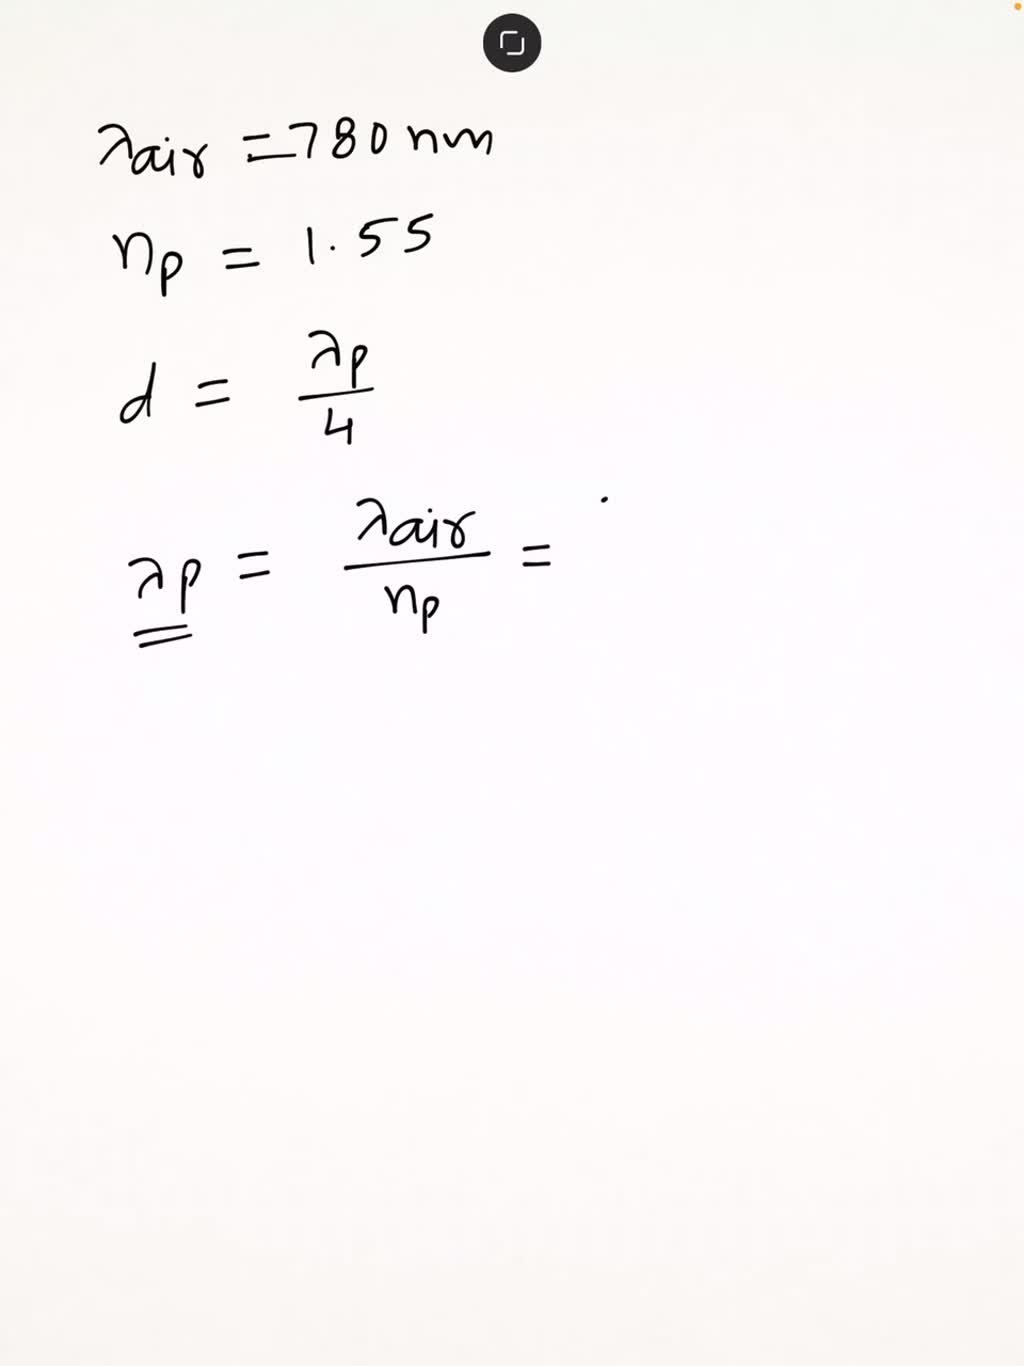 λair = 780 nm
np = 1.55
d = λp/4
λp = λair/np =